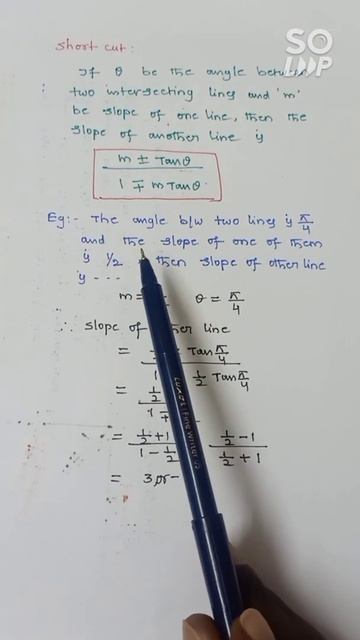 SO
LOOP
short cut:
If θ be the angle between
two intersecting lines and 'm'
be slope of one line, then the
slope of another line is
m ± Tanθ
1 ∓ m Tanθ
Eg:- The angle b/w two lines is π/4
and the slope of one of them
is 1/2 then slope of other line
is ---
m = θ = π/4
∴ slope of other line
= Tan π/4
1 1/2 Tan π/4
= 1/2
1 ∓
= 1/2 + 1 1/2 - 1
1 - 1/2 1/2 + 1
= 3 or -
LUXOR Fine Writer 05